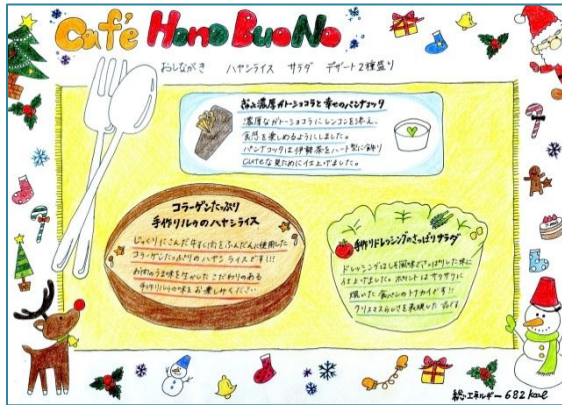 Café Hono BuoNo
おしながき ハヤシライス サラダ デザート2種盛り
濃厚ガトーショコラと幸せのパンナコッタ
濃厚なガトーショコラにレンコンを添え、
食感を楽しめるようにしました。
パンナコッタは伊勢茶をハート型に飾り
cuteな見ために仕上げました。
コラーゲンたっぷり
手作りルゥのハヤシライス
じっくりにこんだ牛すじ肉をふんだんに使用した
コラーゲンたっぷりのハヤシライスです!!!
お肉のうま味を生かしたこだわりのある
手作りルゥの味をお楽しみください
手作りドレッシングのさっぱりサラダ
ドレッシングはしそ風味でさっぱりした味に
仕上げました。ポイントはサクサクに
焼いた食パンのトナカイです!!
クリスマスらしさを表現した一品です
総エネルギー 682 kcal